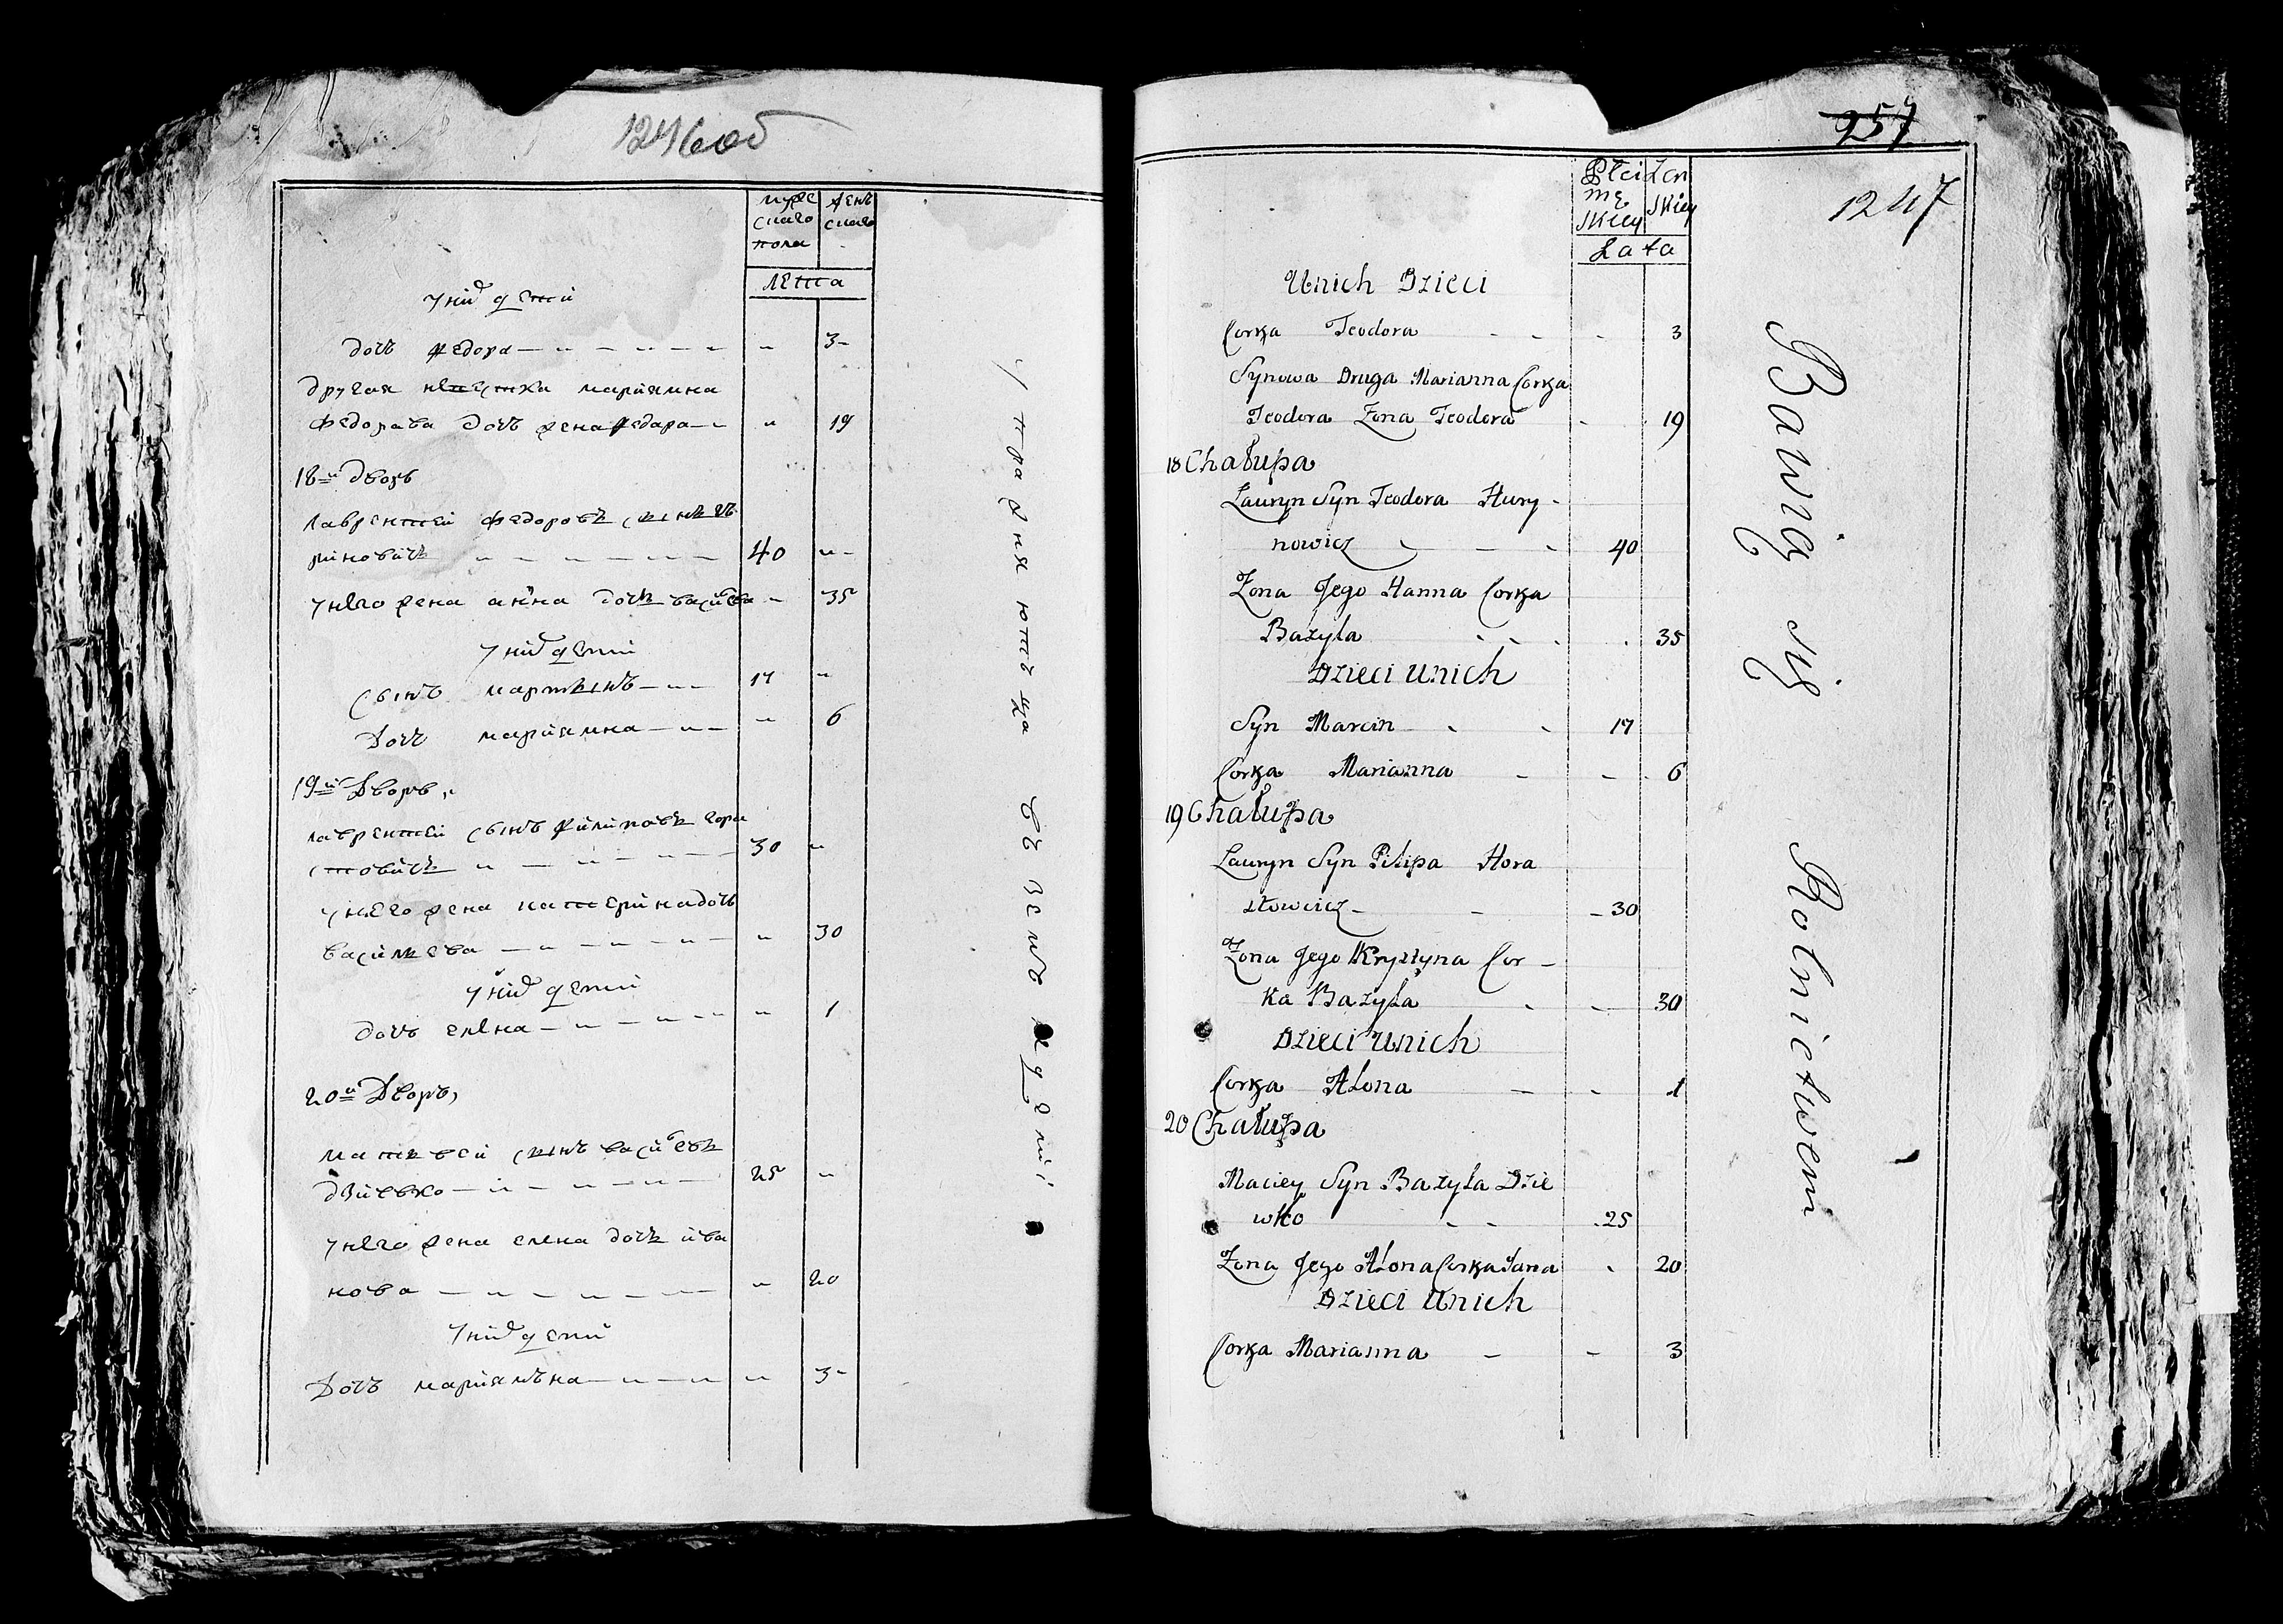 1246об
мужескаго пола
женскаго
лета
у них дети
дочь федора — 3
другая невестка мариямна
Федорава дочь жена федара — 19
18й дворъ
лаврентей федоровъ сынъ гу
риновичъ 40
у него жена анна дочь василева 35
у них дети
сынъ мартынъ 17
Дочь мариямна 6
19й Дворъ,
лаврентей сынъ филиповъ гора
стовичъ 30
у него жена катерина дочь
василева 30
у них дети
дочь елена 1
20й Дворъ,
матвей сынъ василевъ
дзивько 25
у него жена елена дочь ива
нова 20
у них дети
Дочь мариямъна 3
упражняютъца въ земледелии
257
1247
Płci mę skiey
Żeń skiey
Lata
Unich Dzieci
Corka Teodora 3
Synowa Druga Marianna Corka
Teodora Zona Teodora 19
18 Chałupa
Lauryn Syn Teodora Hury-
nowicz 40
Zona Jego Hanna Corka
Bazyla 35
Dzieci Unich
Syn Marcin 17
Corka Marianna 6
19 Chałupa
Lauryn Syn Filipa Hora
stowicz 30
Zona Jego Krystyna Cor-
ka Bazyla 30
Dzieci Unich
Corka Alona 1
20 Chałupa
Maciey Syn Bazyla Dzie
wko 25
Zona Jego Alona Corka Jana 20
Dzieci Unich
Corka Marianna 3
Bawią się Rolnictwem